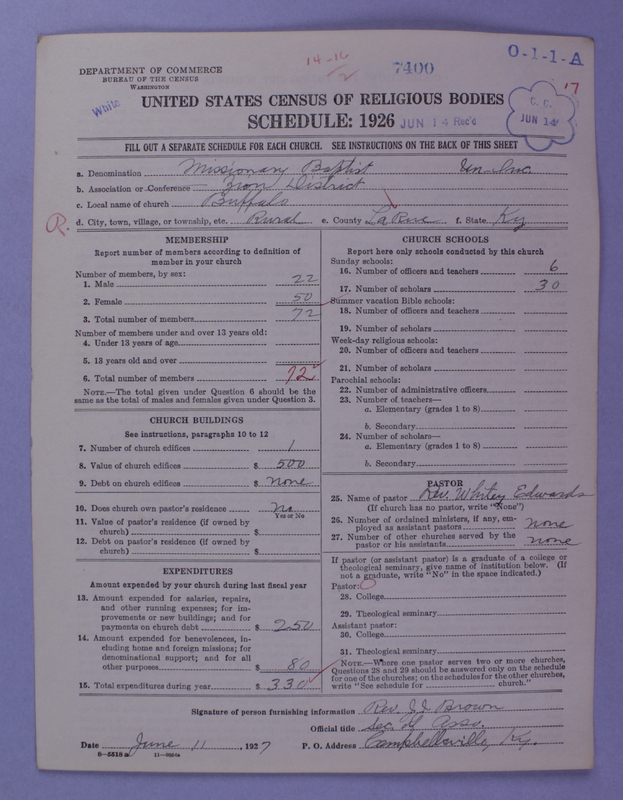 14-16
2
7400
O-1-1-A
DEPARTMENT OF COMMERCE
BUREAU OF THE CENSUS
WASHINGTON
White
UNITED STATES CENSUS OF RELIGIOUS BODIES
SCHEDULE: 1926
JUN 14 Rec'd
C. C.
JUN 14
17
FILL OUT A SEPARATE SCHEDULE FOR EACH CHURCH. SEE INSTRUCTIONS ON THE BACK OF THIS SHEET
a. Denomination Missionary Baptist Un-Inc.
b. Association or Conference Zion District
c. Local name of church Buffalo
R. d. City, town, village, or township, etc. Rural e. County LaRue f. State Ky
MEMBERSHIP
Report number of members according to definition of
member in your church
Number of members, by sex:
1. Male 22
2. Female 50
3. Total number of members 72
Number of members under and over 13 years old:
4. Under 13 years of age
5. 13 years old and over
6. Total number of members 72
NOTE.—The total given under Question 6 should be the
same as the total of males and females given under Question 3.
CHURCH BUILDINGS
See instructions, paragraphs 10 to 12
7. Number of church edifices 1
8. Value of church edifices $ 500
9. Debt on church edifices $ none
10. Does church own pastor's residence? no
Yes or No
11. Value of pastor's residence (if owned by
church) $
12. Debt on pastor's residence (if owned by
church) $
EXPENDITURES
Amount expended by your church during last fiscal year
13. Amount expended for salaries, repairs,
and other running expenses; for im-
provements or new buildings; and for
payments on church debt $ 250
14. Amount expended for benevolences, in-
cluding home and foreign missions; for
denominational support; and for all
other purposes $ 80
15. Total expenditures during year $ 330
CHURCH SCHOOLS
Report here only schools conducted by this church
Sunday schools:
16. Number of officers and teachers 6
17. Number of scholars 30
Summer vacation Bible schools:
18. Number of officers and teachers
19. Number of scholars
Week-day religious schools:
20. Number of officers and teachers
21. Number of scholars
Parochial schools:
22. Number of administrative officers
23. Number of teachers—
a. Elementary (grades 1 to 8)
b. Secondary
24. Number of scholars—
a. Elementary (grades 1 to 8)
b. Secondary
PASTOR
25. Name of pastor Rev. Whitey Edwards
(If church has no pastor, write "None")
26. Number of ordained ministers, if any, em-
ployed as assistant pastors none
27. Number of other churches served by the
pastor or his assistants none
If pastor (or assistant pastor) is a graduate of a college or
theological seminary, give name of institution below. (If
not a graduate, write "No" in the space indicated.)
Pastor: O
28. College
29. Theological seminary
Assistant pastor:
30. College
31. Theological seminary
NOTE.—Where one pastor serves two or more churches,
Questions 28 and 29 should be answered only on the schedule
for one of the churches; on the schedules for the other churches,
write "See schedule for church."
Signature of person furnishing information Rev. J.J. Brown
Official title Sec. of Asso.
Date June 11, 1927 P. O. Address Campbellsville, Ky.
8—5518 a 11—9554a